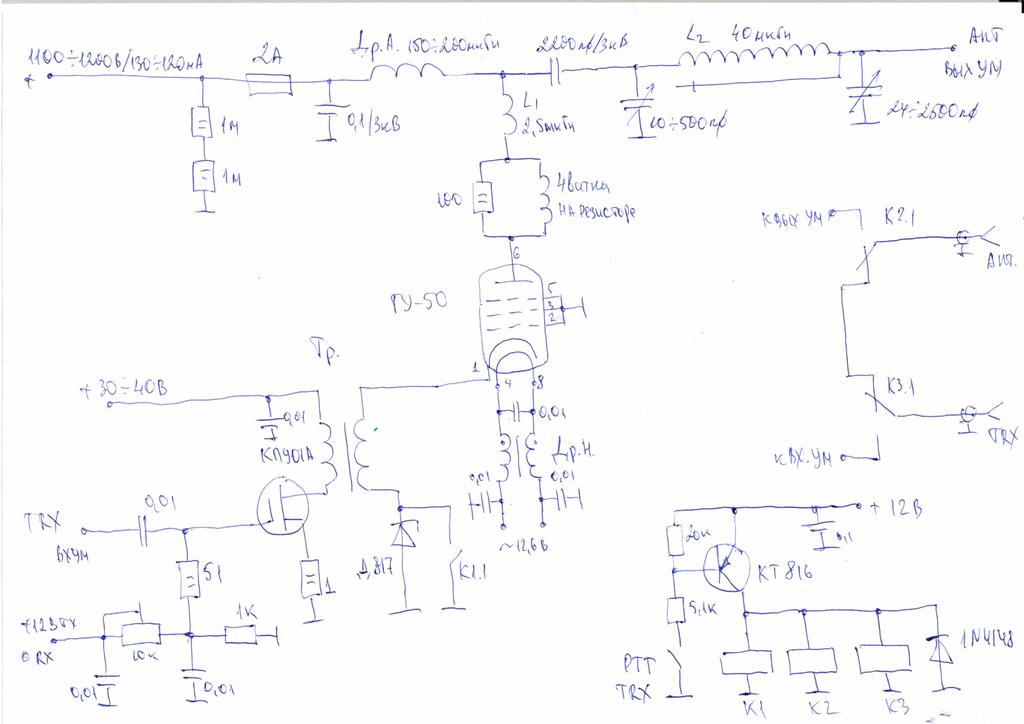 1100÷1200В/130÷120мА
+
2А
Др.А. 150÷200мкГн
2200пф/3кВ
L2 40мкГн
АНТ
ВЫХ УМ
1м
1м
0,1/3кВ
L1
2,5мкГн
10÷500пф
24÷2500пф
100
4 витка
на резисторе
6
ГУ-50
5
3
2
1
4
8
0,01
Др.Н.
0,01
0,01
~12,6В
к вых УМ
К2.1
АНТ.
К3.1
TRX
к вх. УМ
Тр.
+30÷40В
0,01
КП901А
TRX
ВХ УМ
0,01
51
1
Д817
К1.1
+12В TX
0 RX
10к
1к
0,01
0,01
+12В
20к
0,1
КТ816
5,1к
PTT
TRX
К1
К2
К3
1N4148